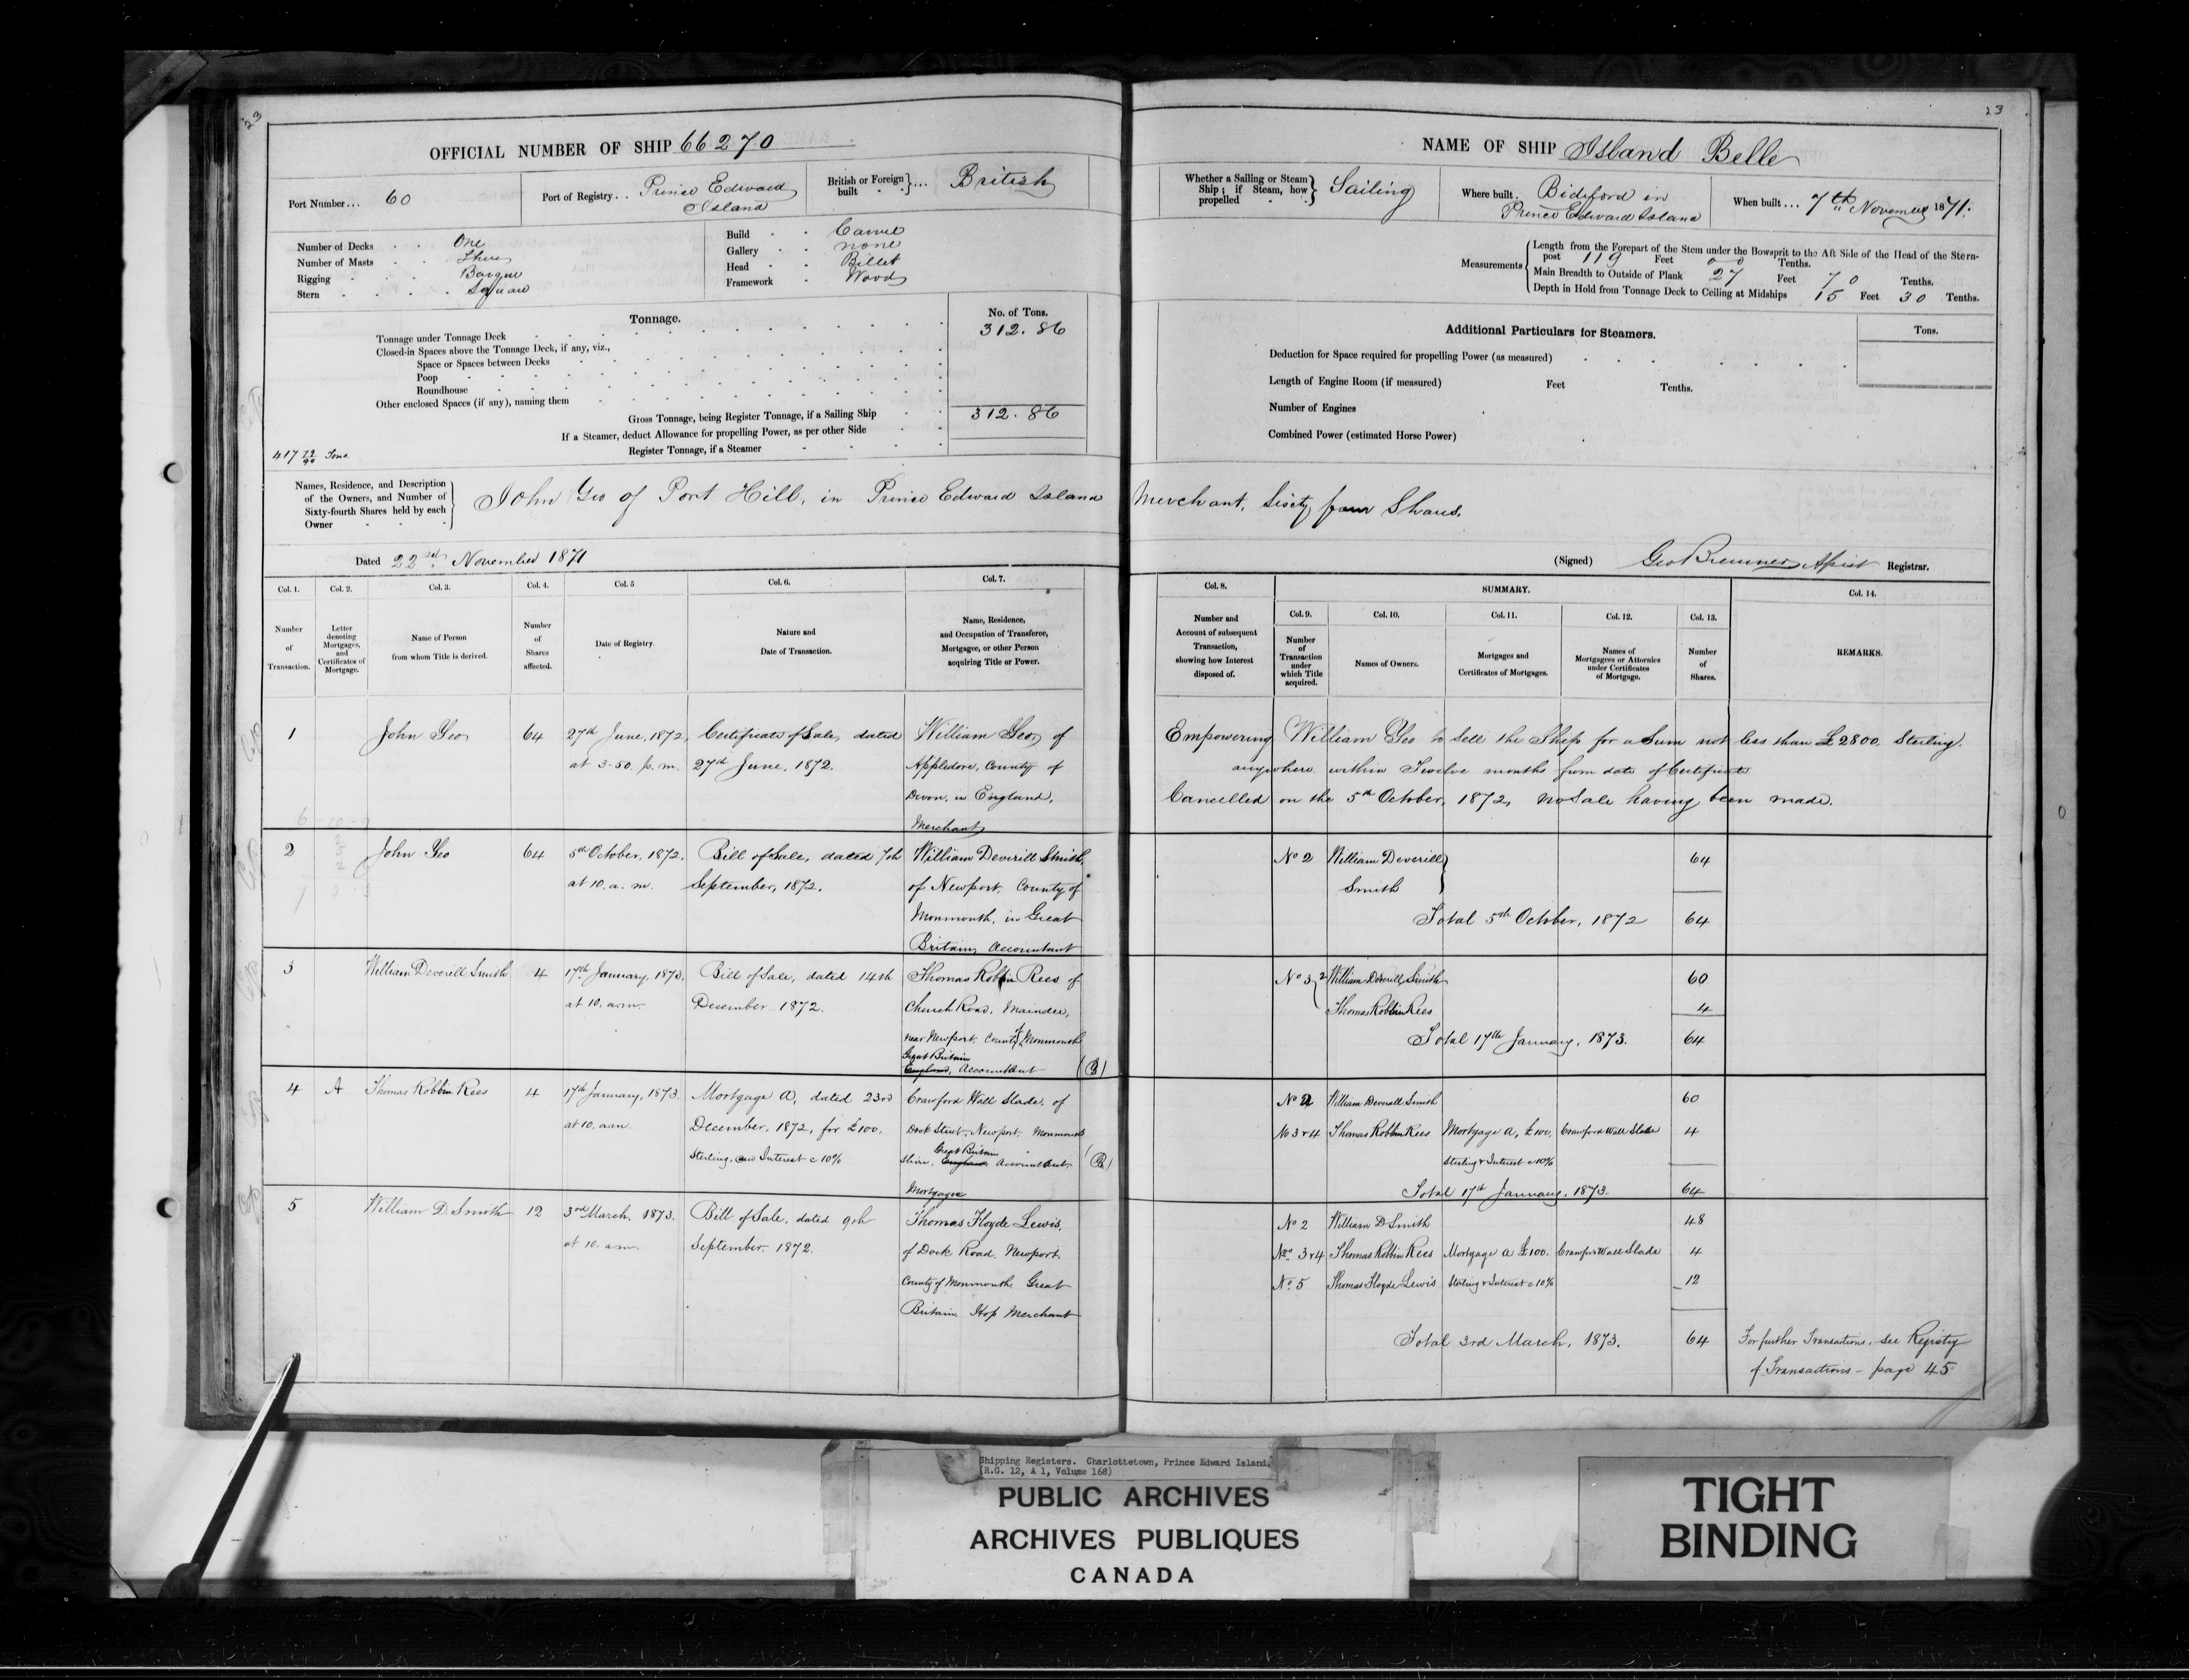 23
OFFICIAL NUMBER OF SHIP 66270
Port Number... 60
Port of Registry.. Prince Edward Island
British or Foreign built ... British
Number of Decks One
Number of Masts Three
Rigging Barque
Stern Square
Build Carvel
Gallery none
Head Billet
Framework Wood
Tonnage.
No. of Tons.
Tonnage under Tonnage Deck 312.86
Closed-in Spaces above the Tonnage Deck, if any, viz.,
Space or Spaces between Decks
Poop
Roundhouse
Other enclosed Spaces (if any), naming them
Gross Tonnage, being Register Tonnage, if a Sailing Ship 312.86
If a Steamer, deduct Allowance for propelling Power, as per other Side
Register Tonnage, if a Steamer
417 72/94 Tons.
Names, Residence, and Description of the Owners, and Number of Sixty-fourth Shares held by each Owner
John Yeo of Port Hill, in Prince Edward Island
Dated 22nd November 1871
Col. 1. Col. 2. Col. 3. Col. 4. Col. 5 Col. 6. Col. 7.
Number of Transaction.
Letter denoting Mortgages, and Certificates of Mortgage.
Name of Person from whom Title is derived.
Number of Shares affected.
Date of Registry.
Nature and Date of Transaction.
Name, Residence, and Occupation of Transferee, Mortgagee, or other Person acquiring Title or Power.
1 John Yeo 64 27th June, 1872, Certificate of Sale, dated William Yeo, of
at 3-50. p.m. 27th June, 1872. Appledore, County of
Devon, in England,
Merchant
2 John Yeo 64 5th October, 1872, Bill of Sale, dated 7th William Deverill Smith,
at 10. a.m. September, 1872. of Newport, County of
Monmouth, in Great
Britain, Accountant
3 William Deverill Smith 4 17th January, 1873, Bill of Sale, dated 14th Thomas Robbin Rees of
at 10. a.m. December 1872. Church Road, Maindee,
near Newport, County of Monmouth
Great Britain
England, Accountant
4 A Thomas Robbin Rees 4 17th January, 1873. Mortgage A, dated 23rd Crawford Wall Slade, of
at 10. a.m. December, 1872, for £100. Dock Street, Newport, Monmouth
Sterling, and Interest @ 10% Great Britain
shire, England, Accountant,
Mortgagee
5 William D Smith 12 3rd March, 1873. Bill of Sale, dated 9th Thomas Floyde Lewis,
at 10. a.m. September, 1872. of Dock Road, Newport,
County of Monmouth, Great
Britain, Hop Merchant
23
NAME OF SHIP Island Belle
Whether a Sailing or Steam Ship; if Steam, how propelled Sailing
Where built. Bideford in Prince Edward Island
When built... 7th November 1871.
Measurements
Length from the Forepart of the Stem under the Bowsprit to the Aft Side of the Head of the Stern-post 119 Feet 00 Tenths.
Main Breadth to Outside of Plank 27 Feet 70 Tenths.
Depth in Hold from Tonnage Deck to Ceiling at Midships 15 Feet 30 Tenths.
Additional Particulars for Steamers.
Tons.
Deduction for Space required for propelling Power (as measured)
Length of Engine Room (if measured) Feet Tenths.
Number of Engines
Combined Power (estimated Horse Power)
Merchant, Sixty four Shares.
(Signed) Geo Bremner Assist Registrar.
Col. 8. SUMMARY. Col. 14.
Col. 9. Col. 10. Col. 11. Col. 12. Col. 13.
Number and Account of subsequent Transaction, showing how Interest disposed of.
Number of Transaction under which Title acquired.
Names of Owners.
Mortgages and Certificates of Mortgages.
Names of Mortgagees or Attornies under Certificates of Mortgage.
Number of Shares.
REMARKS.
Empowering William Yeo to sell the Ship for a Sum not less than £2800. Sterling.
anywhere within Twelve months from date of Certificate
Cancelled on the 5th October, 1872, no Sale having been made.
No 2 William Deverill 64
Smith
Total 5th October, 1872 64
No 3 2 William Deverill Smith 60
Thomas Robbin Rees 4
Total 17th January, 1873. 64
No 2 William Deverall Smith 60
No 3 & 4 Thomas Robbin Rees Mortgage A, £100, Crawford Wall Slade 4
Sterling & Interest @ 10%
Total 17th January, 1873. 64
No 2 William D Smith 48
No 3 & 4 Thomas Robbin Rees Mortgage A £100. Crawford Wall Slade 4
No. 5 Thomas Floyde Lewis Sterling & Interest @ 10% 12
Total 3rd March, 1873. 64
For further Transactions, see Registry
of Transactions - page 45
Shipping Registers. Charlottetown, Prince Edward Island.
(R.G. 12, A 1, Volume 168)
PUBLIC ARCHIVES
ARCHIVES PUBLIQUES
CANADA
TIGHT
BINDING